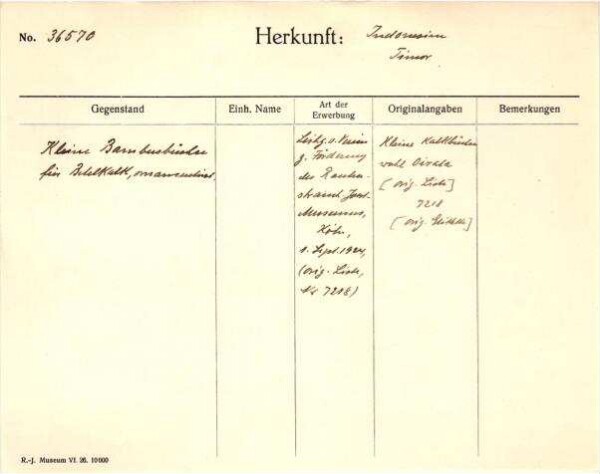 No. 36570
Herkunft: Indonesien
Timor
Gegenstand
Einh. Name
Art der Erwerbung
Originalangaben
Bemerkungen
Kleine Bambusbüchse
für Betelkalk, ornamentiert.
Leihg. v. Verein
z. Förderung
des Rauten-
strauch Joest
Museums,
Köln,
1. Sept. 1924,
(orig. Liste,
Nr 7218)
Kleine Kalkbüchse
wohl
[orig. Liste]
7218
[orig. Etikette]
R.-J. Museum VI. 26. 10000